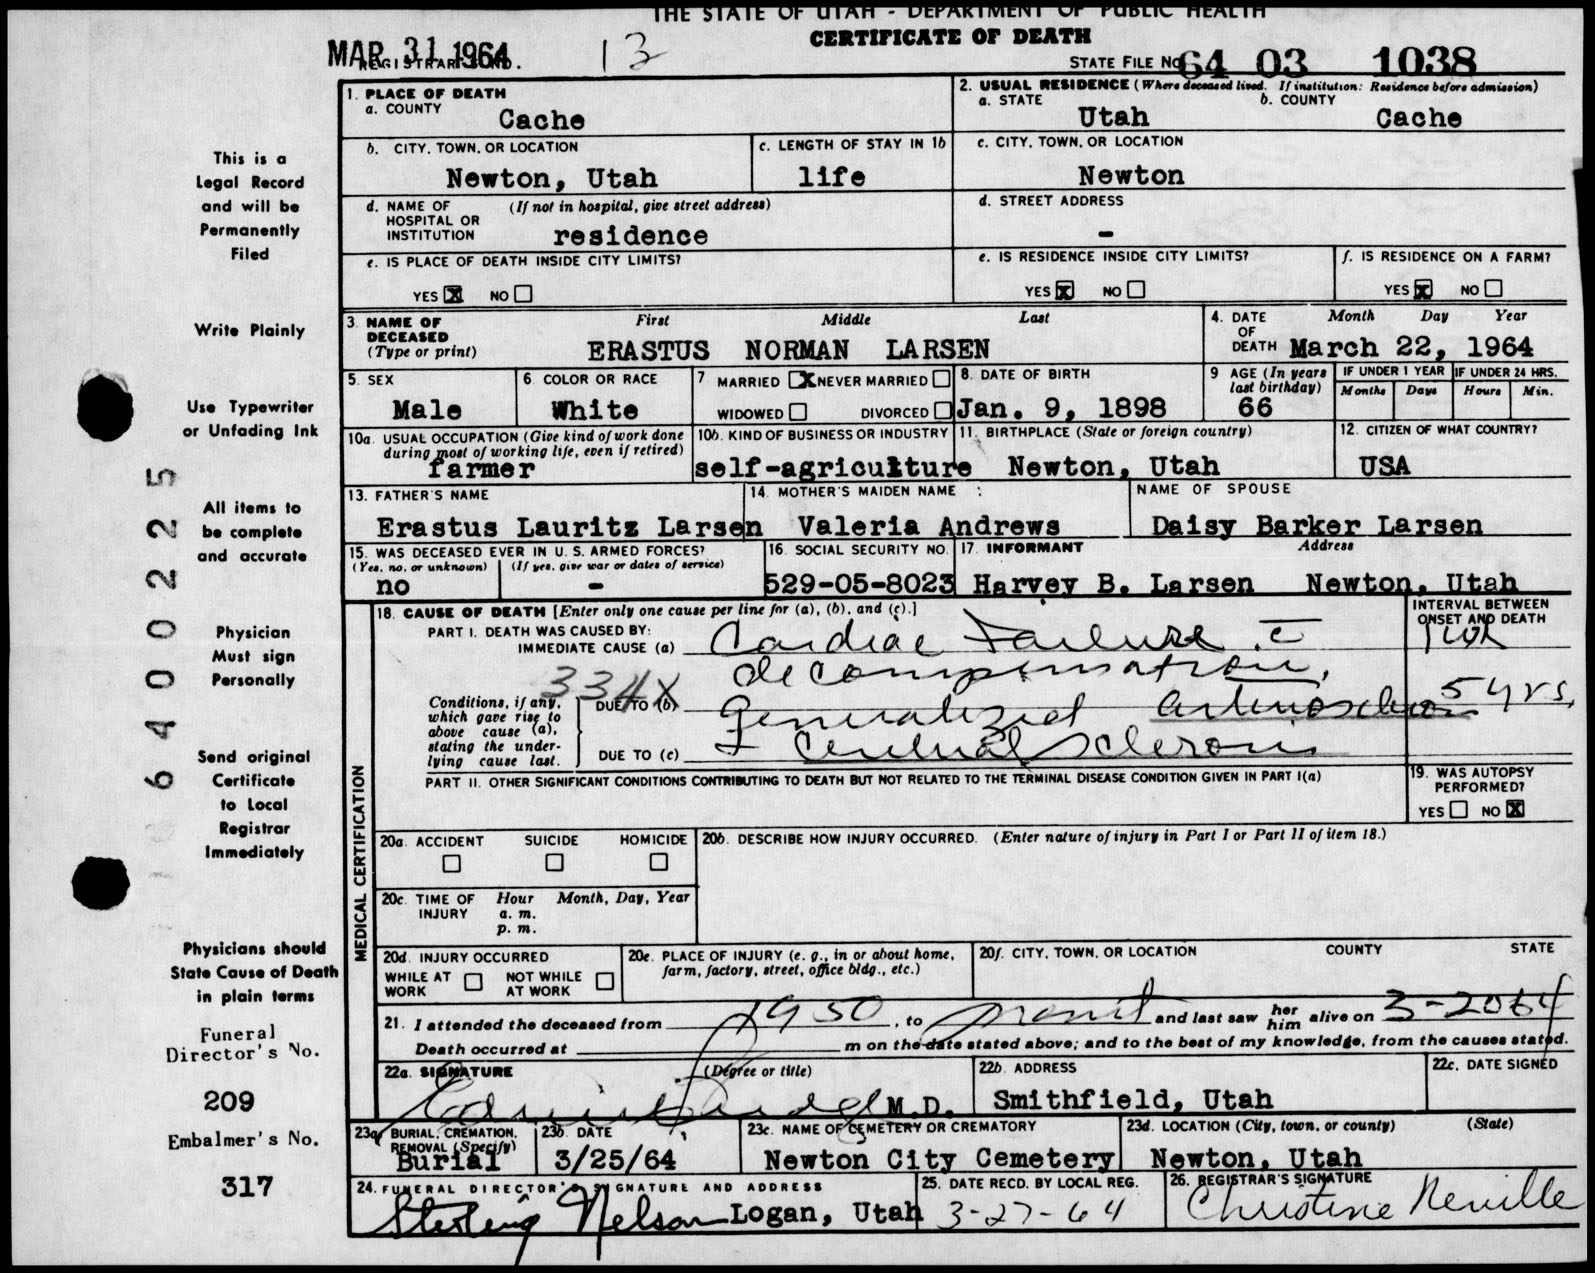 THE STATE OF UTAH - DEPARTMENT OF PUBLIC HEALTH
CERTIFICATE OF DEATH
MAR 31 1964
REGISTRAR'S NO. 13
STATE FILE NO. 64 03 1038
1. PLACE OF DEATH
a. COUNTY
Cache
2. USUAL RESIDENCE (Where deceased lived. If institution: Residence before admission)
a. STATE b. COUNTY
Utah Cache
b. CITY, TOWN, OR LOCATION
Newton, Utah
c. LENGTH OF STAY IN 1b
life
c. CITY, TOWN, OR LOCATION
Newton
d. NAME OF HOSPITAL OR INSTITUTION (If not in hospital, give street address)
residence
d. STREET ADDRESS
-
e. IS PLACE OF DEATH INSIDE CITY LIMITS?
YES X NO
e. IS RESIDENCE INSIDE CITY LIMITS?
YES X NO
f. IS RESIDENCE ON A FARM?
YES X NO
3. NAME OF DECEASED (Type or print)
First Middle Last
ERASTUS NORMAN LARSEN
4. DATE OF DEATH
Month Day Year
March 22, 1964
5. SEX
Male
6. COLOR OR RACE
White
7 MARRIED X NEVER MARRIED
WIDOWED DIVORCED
8. DATE OF BIRTH
Jan. 9, 1898
9 AGE (In years last birthday)
66
IF UNDER 1 YEAR
Months Days
IF UNDER 24 HRS.
Hours Min.
10a. USUAL OCCUPATION (Give kind of work done during most of working life, even if retired)
farmer
10b. KIND OF BUSINESS OR INDUSTRY
self-agriculture
11. BIRTHPLACE (State or foreign country)
Newton, Utah
12. CITIZEN OF WHAT COUNTRY?
USA
13. FATHER'S NAME
Erastus Lauritz Larsen
14. MOTHER'S MAIDEN NAME :
Valeria Andrews
NAME OF SPOUSE
Daisy Barker Larsen
15. WAS DECEASED EVER IN U. S. ARMED FORCES?
(Yes, no, or unknown) (If yes, give war or dates of service)
no -
16. SOCIAL SECURITY NO.
529-05-8023
17. INFORMANT Address
Harvey B. Larsen Newton, Utah
18. CAUSE OF DEATH [Enter only one cause per line for (a), (b), and (c).]
INTERVAL BETWEEN ONSET AND DEATH
PART I. DEATH WAS CAUSED BY:
IMMEDIATE CAUSE (a) Cardiac Failure c̄
decompensation,
334X
Conditions, if any, which gave rise to above cause (a), stating the underlying cause last.
DUE TO (b) Generalized arteriosclerosis 5 yrs.
DUE TO (c) + cerebral sclerosis
PART II. OTHER SIGNIFICANT CONDITIONS CONTRIBUTING TO DEATH BUT NOT RELATED TO THE TERMINAL DISEASE CONDITION GIVEN IN PART I(a)
19. WAS AUTOPSY PERFORMED?
YES NO X
MEDICAL CERTIFICATION
20a. ACCIDENT SUICIDE HOMICIDE
20b. DESCRIBE HOW INJURY OCCURRED. (Enter nature of injury in Part I or Part II of item 18.)
20c. TIME OF INJURY Hour Month, Day, Year
a. m.
p. m.
20d. INJURY OCCURRED
WHILE AT WORK NOT WHILE AT WORK
20e. PLACE OF INJURY (e. g., in or about home, farm, factory, street, office bldg., etc.)
20f. CITY, TOWN, OR LOCATION COUNTY STATE
21. I attended the deceased from 1950, to present and last saw her him alive on 3-20 64
Death occurred at m on the date stated above; and to the best of my knowledge, from the causes stated.
22a. SIGNATURE (Degree or title)
M.D.
22b. ADDRESS
Smithfield, Utah
22c. DATE SIGNED
23a. BURIAL, CREMATION, REMOVAL (Specify)
Burial
23b. DATE
3/25/64
23c. NAME OF CEMETERY OR CREMATORY
Newton City Cemetery
23d. LOCATION (City, town, or county) (State)
Newton, Utah
24. FUNERAL DIRECTOR'S SIGNATURE AND ADDRESS
Sterling Nelson Logan, Utah
25. DATE RECD. BY LOCAL REG.
3-27-64
26. REGISTRAR'S SIGNATURE
Christine Neville
This is a
Legal Record
and will be
Permanently
Filed
Write Plainly
Use Typewriter
or Unfading Ink
All items to
be complete
and accurate
Physician
Must sign
Personally
Send original
Certificate
to Local
Registrar
Immediately
Physicians should
State Cause of Death
in plain terms
Funeral
Director's No.
209
Embalmer's No.
317
64002225